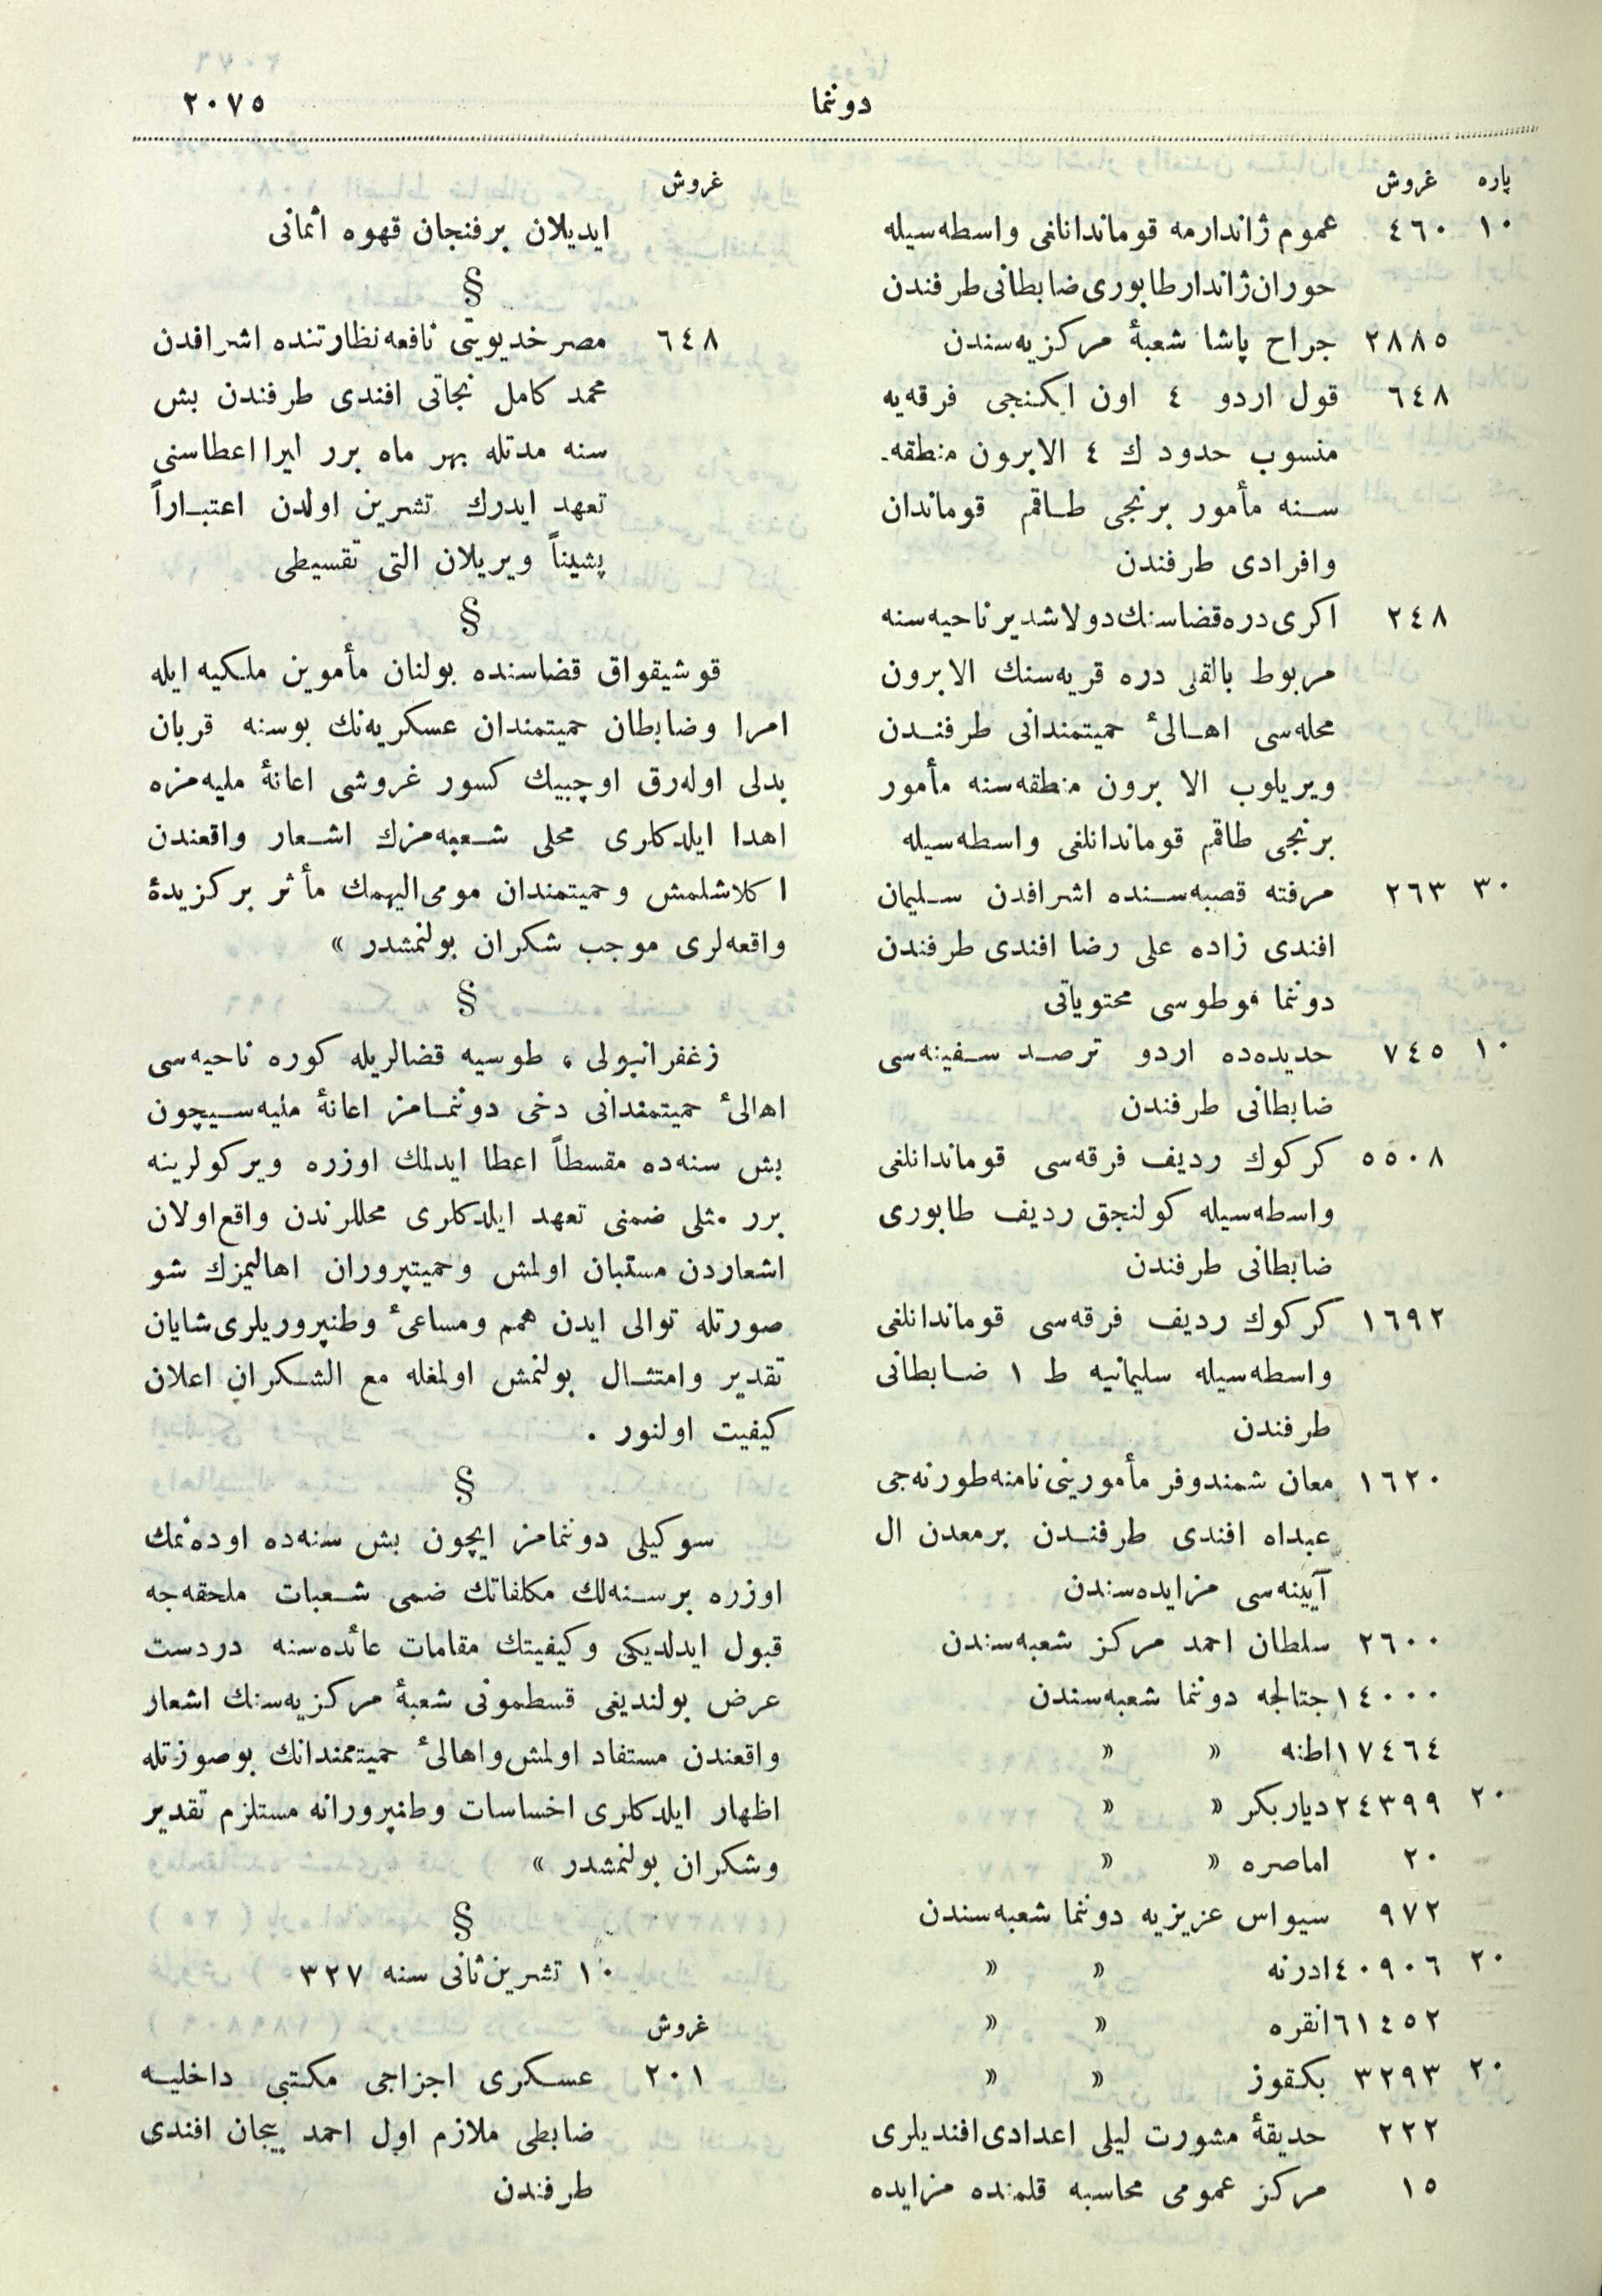 دوننما
٢٠٧٥
پاره غروش
١٠ ٤٦٠ عموم ژاندارمه قوماندانلغی واسطه‌سیله
حوران ژاندار طابوری ضابطانی طرفندن
٢٨٨٥ جراح پاشا شعبهٔ مرکزیه‌سندن
٦٤٨ قول اردو ٤ اون ایکنجی فرقه‌یه
منسوب حدود ك ٤ الابرون منطقه‌ـ
سنه مأمور برنجی طاقم قوماندان
وافرادی طرفندن
٢٤٨ اکری دره قضاسنك دولاشدیر ناحیه‌سنه
مربوط بالقلی دره قریه‌سنك الابرون
محله‌سی اهالیٔ حمیتمندانی طرفندن
ویریلوب الا برون منطقه‌سنه مأمور
برنجی طاقم قوماندانلغی واسطه‌سیله
٣٠ ٢٦٣ مرفته قصبه‌سنده اشرافدن سلیمان
افندی زاده علی رضا افندی طرفندن
دوننما فوطوسی محتویاتی
١٠ ٧٤٥ حدیده‌ده اردو ترصد سفینه‌سی
ضابطانی طرفندن
٥٥٠٨ کرکوك ردیف فرقه‌سی قوماندانلغی
واسطه‌سیله کولنجق ردیف طابوری
ضابطانی طرفندن
١٦٩٢ کرکوك ردیف فرقه‌سی قوماندانلغی
واسطه‌سیله سلیمانیه ط ١ ضابطانی
طرفندن
١٦٢٠ معان شمندوفر مأمورینی نامنه طورنه‌جی
عبداه افندی طرفندن برمعدن ال
آیینه‌سی مزایده‌سندن
٢٦٠٠ سلطان احمد مرکز شعبه‌سندن
١٤٠٠٠ جتالجه دوننما شعبه‌سندن
١٧٤٦٤ اطنه » »
٢٠ ٢٤٣٩٩ دیاربکر » »
٢٠ اماصره » »
٩٧٢ سیواس عزیزیه دوننما شعبه‌سندن
٢٠ ٤٠٩٠٦ ادرنه » »
٦١٤٥٢ انقره » »
٢٠ ٣٢٩٣ بکقوز » »
٢٢٢ حدیقهٔ مشورت لیلی اعدادی افندیلری
١٥ مرکز عمومی محاسبه قلمنده مزایده
غروش
ایدیلان برفنجان قهوه اثمانی
§
٦٤٨ مصر خدیویتی نافعه نظارتنده اشرافدن
محمد کامل نجاتی افندی طرفندن بش
سنه مدتله بهر ماه برر لیرا اعطاسنی
تعهد ایدرك تشرین اولدن اعتباراً
پشیناً ویریلان التی تقسیطی
§
قوشیقواق قضاسنده بولنان مأموین ملکیه ایله
امرا وضابطان حمیتمندان عسکریه‌نك بوسنه قربان
بدلی اوله‌رق اوچبیك کسور غروشی اعانهٔ ملیه‌مزه
اهدا ایلدکلری محلی شعبه‌مزك اشعار واقعندن
اکلاشلمش وحمیتمندان مومی‌الیهمك مأثر برکزیدهٔ
واقعه‌لری موجب شکران بولنمشدر »
§
زغفرانبولی ، طوسیه قضالریله کوره ناحیه‌سی
اهالیٔ حمیتمندانی دخی دوننمامز اعانهٔ ملیه‌سیچون
بش سنه‌ده مقسطاً اعطا ایدلمك اوزره ویرکولرینه
برر مثلی ضمنی تعهد ایلدکلری محللرندن واقع اولان
اشعاردن مستبان اولمش وحمیتپروران اهالیمزك شو
صورتله توالی ایدن همم ومساعیٔ وطنپروریلری شایان
تقدیر وامتثال بولنمش اولمغله مع الشکران اعلان
کیفیت اولنور .
§
سوکیلی دوننمامز ایچون بش سنه‌ده اوده‌نمك
اوزره برسنه‌لك مکلفاتك ضمی شعبات ملحقه‌جه
قبول ایدلدیکی وکیفیتك مقامات عائده‌سنه دردست
عرض بولندیغی قسطمونی شعبهٔ مرکزیه‌سنك اشعار
واقعندن مستفاد اولمش واهالیٔ حمیتمندانك بوصورتله
اظهار ایلدکلری اخساسات وطنپرورانه مستلزم تقدیر
وشکران بولنمشدر »
§
١٠ تشرین ثانی سنه ٣٢٧
غروش
٢٠١ عسکری اجزاجی مکتبی داخلیه
ضابطی ملازم اول احمد بیجان افندی
طرفندن